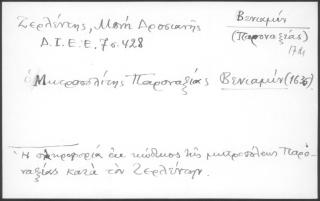 Ζερλέντης, Μονή Δροσιανῆς
Δ.Ι.Ε.Ε. 7ος. 428
Βενιαμὶν
(Παροναξίας)
Μητροπολίτης Παροναξίας Βενιαμὶν
Ἡ πληροφορία ἐκ κώδικος τῆς μητροπόλεως Παρο-
ναξίας κατὰ τὸν Ζερλέντην.